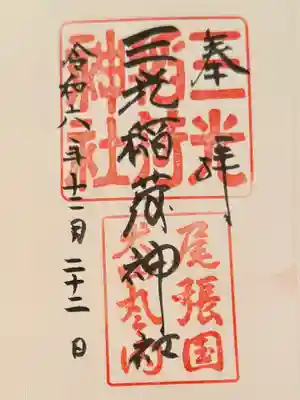 奉拝
三光稲荷神社
令和六年十二月二十二日
三光
稲荷
神社
尾張国